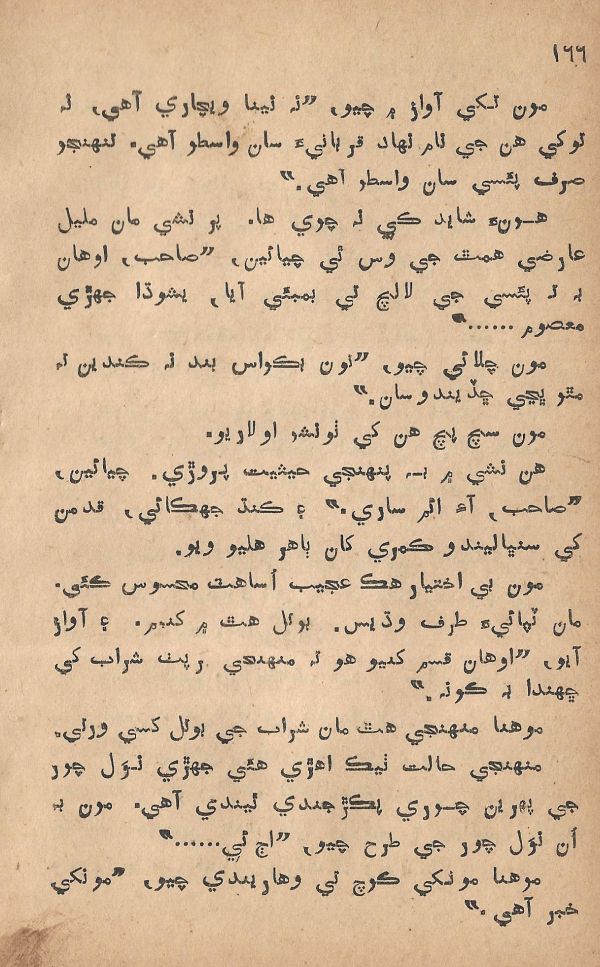 ١٦٦
مون تکي آواز ۾ چيو، ”نہ نينا ويچاري آهي، نہ
توکي هن جي نام نهاد قربانيءَ سان واسطو آهي. تنهنجو
صرف پئسي سان واسطو آهي.“
هـوتہ شايد ڪجي نہ چوي ها. پر نشي مان مليل
عارضي همت جي وس ٿي چيائين، ”صاحب، اوهان
بہ تہ پئسي جي لالچ تي بمبئي آيا، يشوڌا جهڙي
معصوم ......“
مون چلائي چيو، ”تون بڪواس بند نہ ڪندين تہ
مٿو ڀڃي ڇڏيندوسان.“
مون سچ پچ هن کي ٺونشو اولاريو.
هن نشي ۾ بہ پنهنجي حيثيت پروڙي. چيائين،
”صاحب، آءِ ائم ساري.“ ۽ ڪنڌ جهڪائي، قدمن
کي سنڀاليندو ڪمري کان ٻاهر هليو ويو.
مون بي اختيار هڪ عجيب اُساهت محسوس ڪئي.
مان ٽپائيءَ طرف وڌيس. بوتل هٿ ۾ کنيم. ۽ آواز
آيو، ”اوهان قسم کنيو هو تہ منهنجي رپٽ شراب کي
ڇهندا بہ ڪونہ.“
موهنا منهنجي هٿ مان شراب جي بوتل کسي ورتي.
منهنجي حالت ٺيڪ اهڙي هئي جهڙي نـوَل چور
جي پهرين چـوري پڪڙجندي ٿيندي آهي. مون بہ
اُن نوَل چور جي طرح چيو، ”اڄ ئي......“
موهنا مونکي ڪوچ تي وهاريندي چيو، ”مونکي
خبر آهي.“